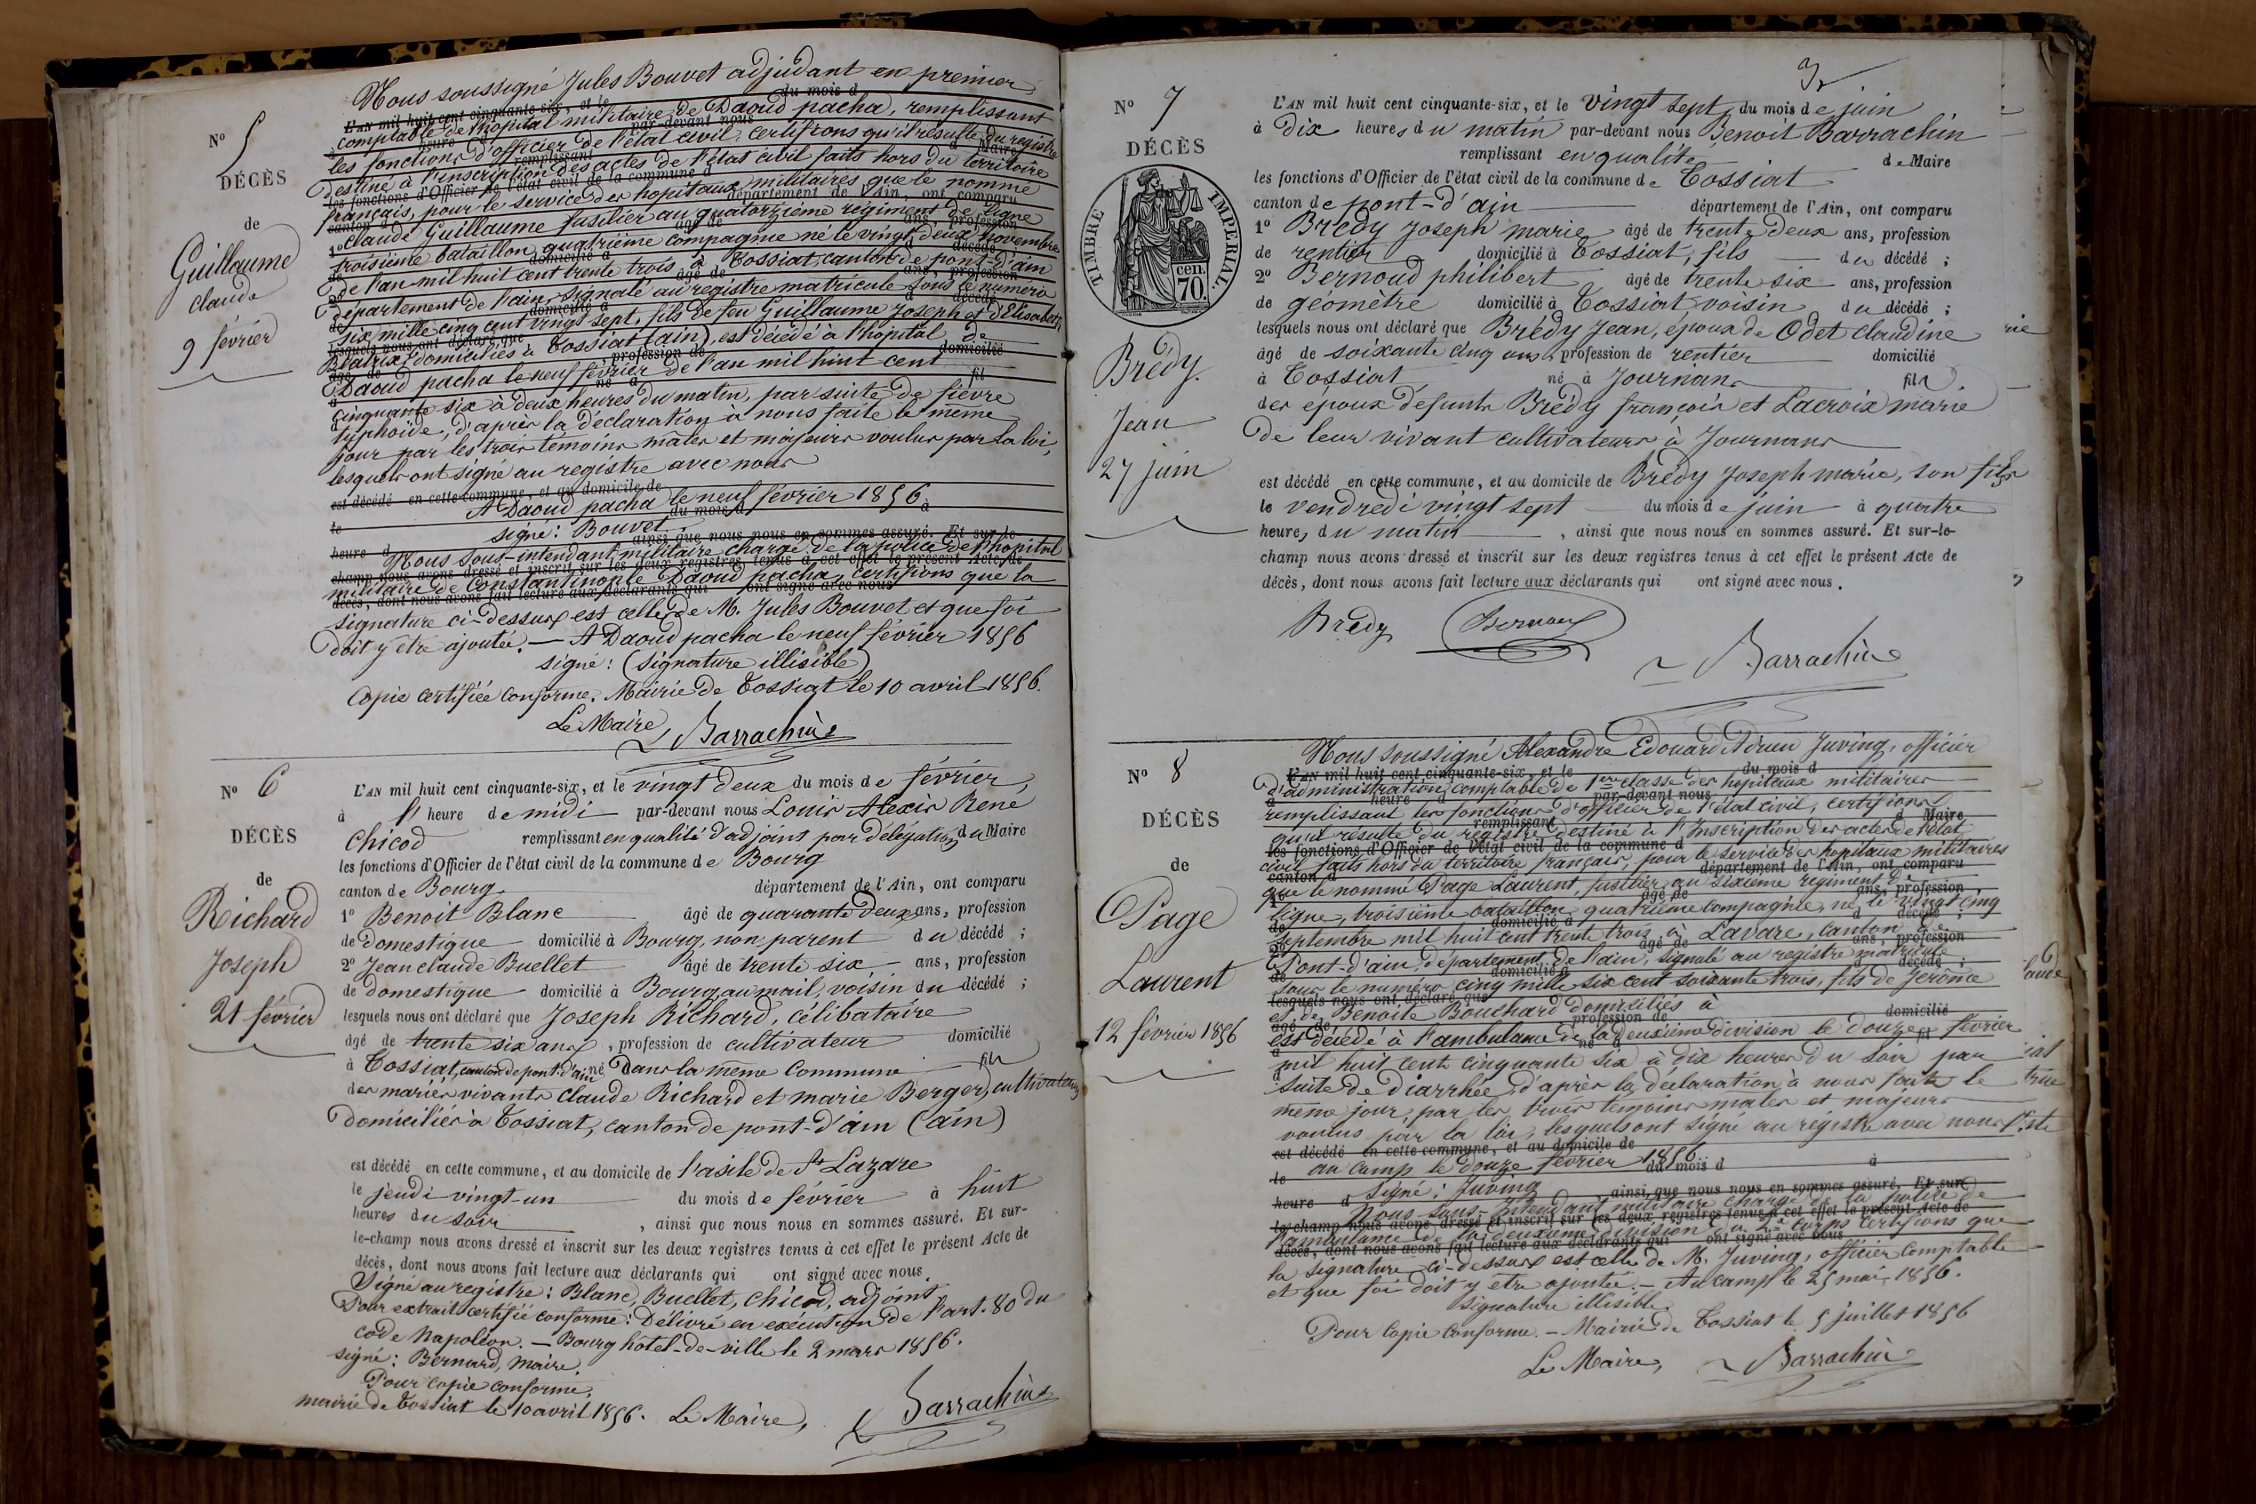 N° 5
DÉCÈS
de
Guillaume
Claude
9 février
Nous soussigné Jules Bouvet adjudant en premier
L'AN mil huit cent cinquante-six, et le du mois d
comptable de l'hôpital militaire de Daoud pacha, remplissant
heure par-devant nous
les fonctions d'officier de l'état civil, certifions qu'il résulte du registre
remplissant d Maire
destiné à l'inscription des actes de l'état civil faits hors du territoire
les fonctions d'Officier de l'état civil de la commune d
français, pour le service des hopitaux militaires que le nommé
canton département de l'Ain, ont comparu
Claude Guillaume fusilier au quatorzième régiment de ligne
1° âgé de ans, profession
troisième bataillon quatrième compagnie né le vingt deux novembre
de domicilié à d décédé
de l'an mil huit cent trente trois à Tossiat, canton de pont-d'ain
2° âgé de ans, profession
département de l'ain, signalé au registre matricule sous le numéro
de domicilié à d décédé
six mille cinq cent vingt sept, fils de feu Guillaume Joseph et d'Elisabeth
lesquels nous ont déclaré que
Blatrix, domiciliés à Tossiat (ain), est décédé à l'hôpital de
âgé de profession de domicilié
Daoud pacha le neuf février de l'an mil huit cent
à né à fil
cinquante six à deux heures du matin, par suite de fièvre
typhoïde, d'après la déclaration à nous faite le même
jour par les trois témoins mâles et majeurs voulus par la loi,
lesquels ont signé au registre avec nous
est décédé en cette commune, et au domicile de
A Daoud pacha le neuf février 1856
le du mois d à
signé: Bouvet
heure d ainsi que nous nous en sommes assuré. Et sur-le-
Nous sous-intendant militaire chargé de la police de l'hopital
champ nous avons dressé et inscrit sur les deux registres tenus à cet effet le présent Acte de
militaire de Constantinople Daoud pacha, certifions que la
décès, dont nous avons fait lecture aux déclarants qui ont signé avec nous
signature ci-dessus est celle de M. Jules Bouvet et que foi
doit y être ajoutée. — A Daoud pacha le neuf février 1856
signé: (signature illisible)
Copie certifiée conforme. Mairie de Tossiat le 10 avril 1856.
Le Maire, Barrachin
N° 6
DÉCÈS
de
Richard
Joseph
21 février
L'AN mil huit cent cinquante-six, et le vingt deux du mois de février,
à l' heure de midi par-devant nous Louis Alexis René
Chicod remplissant en qualité d'adjoint par délégation du Maire
les fonctions d'Officier de l'état civil de la commune de Bourg
canton de Bourg département de l'Ain, ont comparu
1° Benoit Blanc âgé de quarante deux ans, profession
de domestique domicilié à Bourg, non parent du décédé ;
2° Jean claude Buellet âgé de trente six ans, profession
de domestique domicilié à Bourg au mail, voisin du décédé ;
lesquels nous ont déclaré que Joseph Richard, célibataire
âgé de trente six ans, profession de cultivateur domicilié
à Tossiat, canton de pont-d'ain né dans la meme commune fils
des mariés vivants claude Richard et marie Berger, cultivateurs
domiciliés à Tossiat, canton de pont-d'ain (ain)
est décédé en cette commune, et au domicile de l'asile de St Lazare
le jeudi vingt-un du mois de février à huit
heures du soir, ainsi que nous nous en sommes assuré. Et sur-
le-champ nous avons dressé et inscrit sur les deux registres tenus à cet effet le présent Acte de
décès, dont nous avons fait lecture aux déclarants qui ont signé avec nous.
Signé au registre: Blanc, Buellet, Chicod, adjoint
Pour extrait certifié conforme: Délivré en exécution de l'art. 80 du
code Napoléon. — Bourg hôtel-de-ville le 2 mars 1856.
signé: Bernard, maire.
Pour copie conforme.
mairie de Tossiat le 10 avril 1856. Le Maire, Barrachin
N° 7
DÉCÈS
TIMBRE IMPÉRIAL.
70 cen.
Brédy.
Jean
27 juin
L'AN mil huit cent cinquante-six, et le vingt sept du mois de juin
à dix heures du matin par-devant nous Benoit Barrachin
remplissant en qualité de Maire
les fonctions d'Officier de l'état civil de la commune de Tossiat
canton de pont-d'ain département de l'Ain, ont comparu
1° Brédy Joseph marie âgé de trente deux ans, profession
de rentier domicilié à Tossiat, fils du décédé ;
2° Bernoud philibert âgé de trente six ans, profession
de géomètre domicilié à Tossiat, voisin du décédé ;
lesquels nous ont déclaré que Brédy Jean, époux de Odet claudine
âgé de soixante cinq ans, profession de rentier domicilié
à Tossiat né à Journans fils
des époux défunts Brédy françois et Lacroix marie
de leur vivant cultivateurs à Journans
est décédé en cette commune, et au domicile de Brédy Joseph marie, son fils
le vendredi vingt sept du mois de juin à quatre
heure, du matin, ainsi que nous nous en sommes assuré. Et sur-le-
champ nous avons dressé et inscrit sur les deux registres tenus à cet effet le présent Acte de
décès, dont nous avons fait lecture aux déclarants qui ont signé avec nous.
Brédy Bernoud
Barrachin
N° 8
DÉCÈS
de
Page
Laurent
12 février 1856
Nous soussigné Alexandre Edouard Adrien Juving, officier
L'AN mil huit cent cinquante-six, et le du mois d
d'administration comptable de 1ère classe des hopitaux militaires
à heure d par-devant nous
remplissant les fonctions d'officier de l'état civil, certifions
remplissant d Maire
qu'il résulte du registre destiné à l'Inscription des actes de l'état
les fonctions d'Officier de l'état civil de la commune d
civil faits hors du territoire français, pour le service des hopitaux militaires
canton d département de l'Ain, ont comparu
que le nommé Page Laurent, fusilier au sixième régiment de
1° âgé de ans, profession
ligne, troisième bataillon quatrième compagnie, né le vingt cinq
de domicilié à d décédé ;
septembre mil huit cent trente trois à Lavare, canton de
2° âgé de ans, profession
Pont-d'ain, département de l'ain, signalé au registre matricule
de domicilié à d décédé ;
sous le numéro cinq mille six cent soixante trois, fils de Jérôme
lesquels nous ont déclaré que
et de Benoite Bouchard domiciliés à
âgé de profession de domicilié
est décédé à l'ambulance de la deuxième division le douze février
à né à fil
mil huit cent cinquante six à dix heures du soir par
suite de Diarrhée, d'après la déclaration à nous faite le
même jour, par les trois témoins mâles et majeurs
voulus par la loi, lesquels ont signé au régistre avec nous
est décédé en cette commune, et au domicile de
au camp le douze février 1856
le du mois d à
signé: Juving
heure d , ainsi que nous nous en sommes assuré. Et sur-
Nous sous-Intendant militaire chargé de la police de
le-champ nous avons dressé et inscrit sur les deux registres tenus à cet effet le présent Acte de
l'ambulance de la deuxième division du corps certifions que
décès, dont nous avons fait lecture aux déclarants qui ont signé avec nous
la signature ci-dessus est celle de M. Juving, officier comptable
et que foi doit y être ajoutée. — Au camp le 25 mai 1856.
Signature illisible.
Pour Copie Conforme. — Mairie de Tossiat le 5 juillet 1856
Le Maire, Barrachin